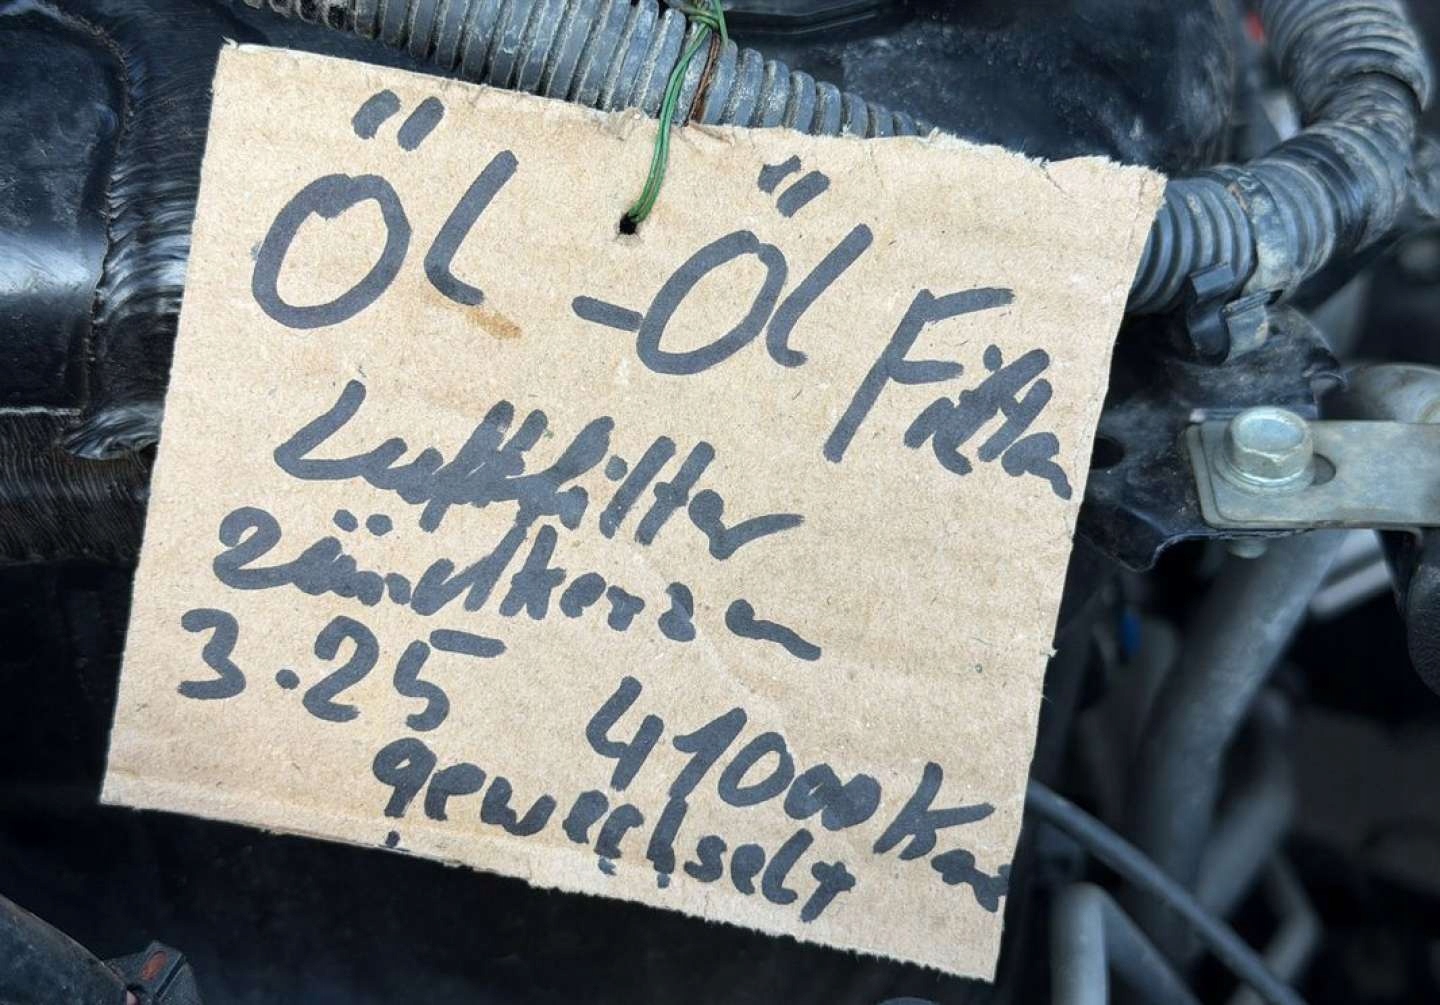 Öl - Öl Filter
Luftfilter
Zündkerzen
3.25 41000 Km
gewechselt